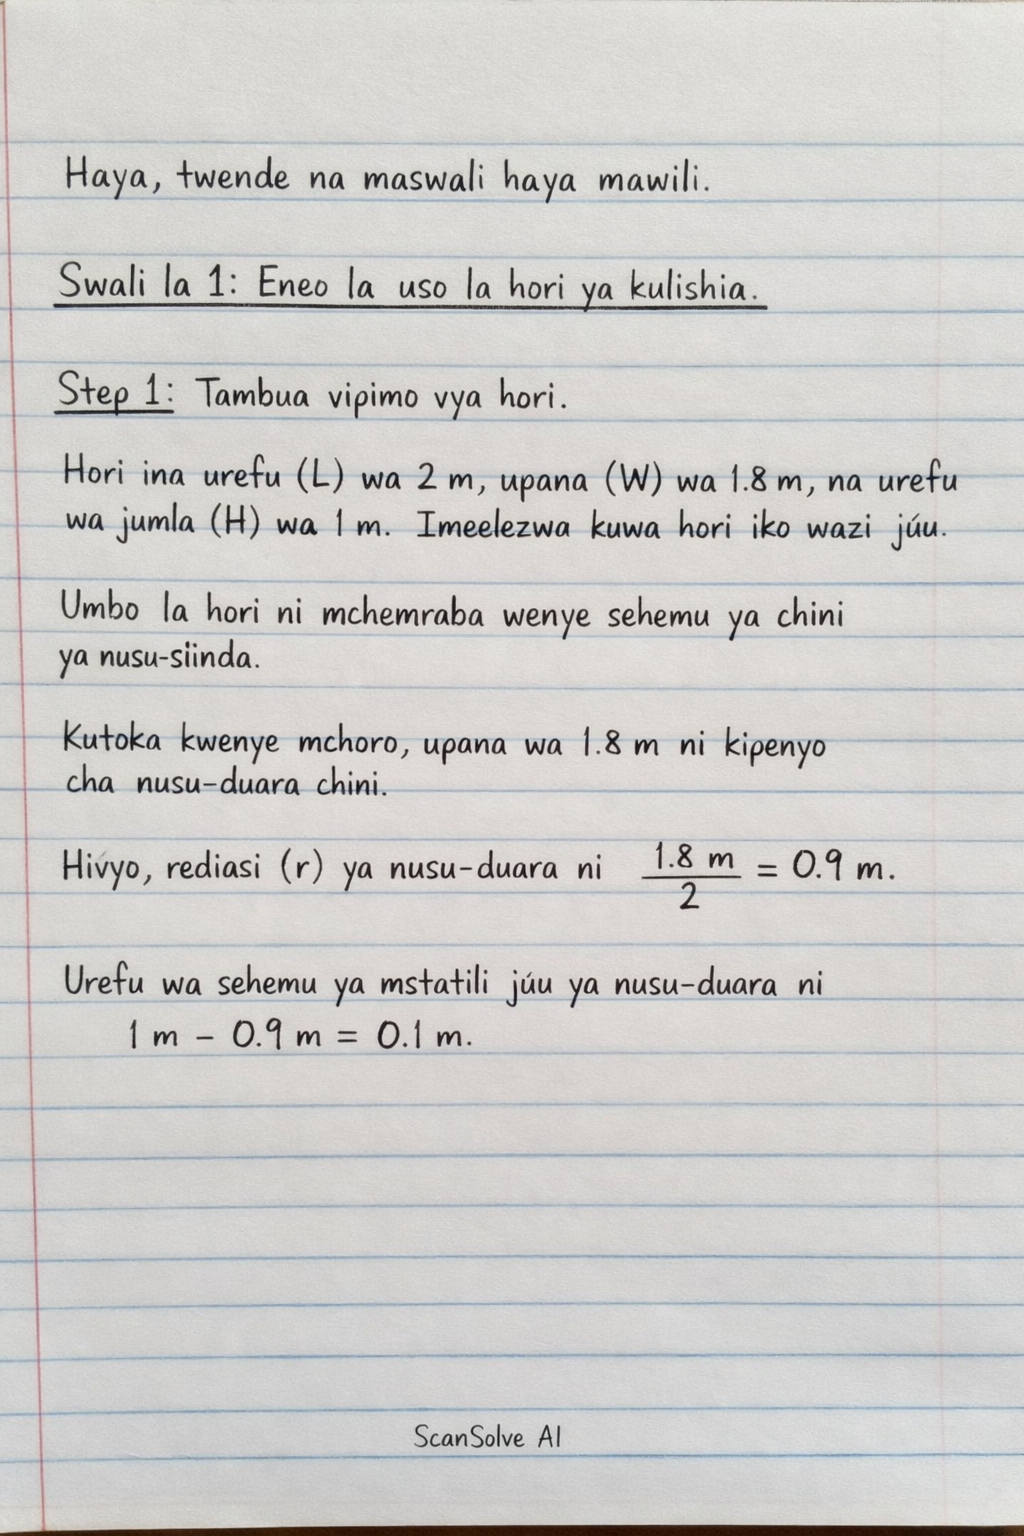 Haya, twende na maswali haya mawili.
Swali la 1: Eneo la uso la hori ya kulishia.
Step 1: Tambua vipimo vya hori.
Hori ina urefu (L) wa 2 m, upana (W) wa 1.8 m, na urefu
wa jumla (H) wa 1 m. Imeelezwa kuwa hori iko wazi júu.
Umbo la hori ni mchemraba wenye sehemu ya chini
ya nusu-siinda.
Kutoka kwenye mchoro, upana wa 1.8 m ni kipenyo
cha nusu-duara chini.
Hivyo, rediasi (r) ya nusu-duara ni 1.8 m / 2 = 0.9 m.
Urefu wa sehemu ya mstatili júu ya nusu-duara ni
1 m - 0.9 m = 0.1 m.
ScanSolve AI